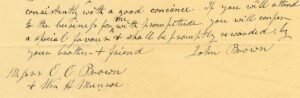 consistently with a good concience. If you will attend
to the business for me with promptitude, you will confer
a special favour & shall be promptly rewarded by
your brother & friend John Brown
Messrs O. C. Brown
& Wm A Munroe